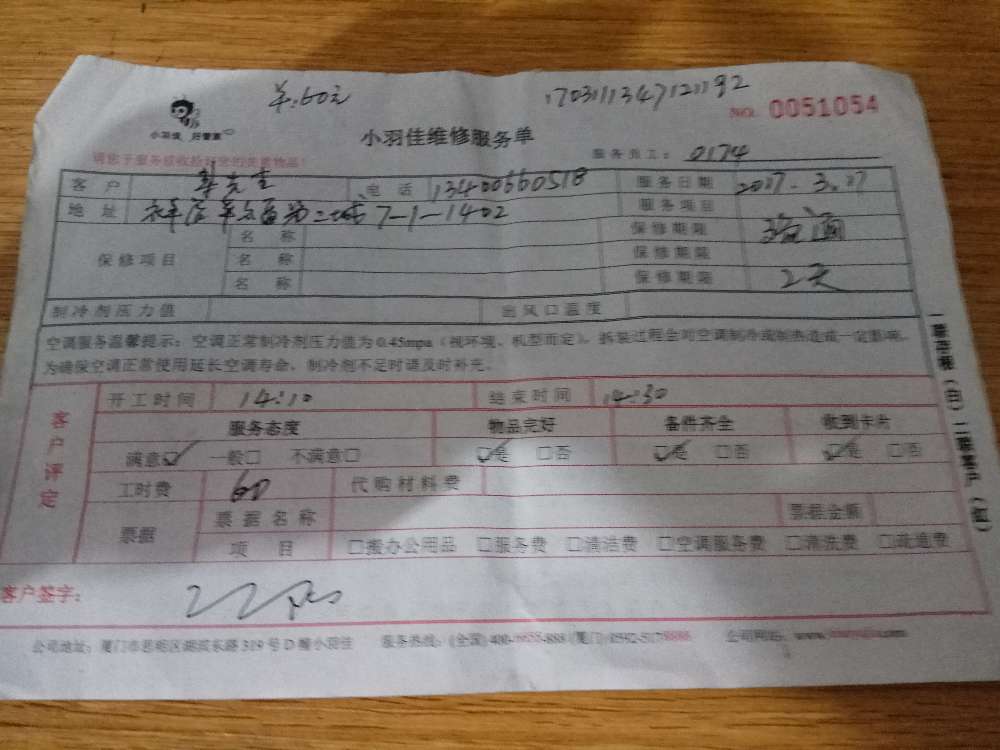 单:60元 17031113471211192
NO. 0051054
小羽佳 好管家
小羽佳维修服务单
服务员工: 0174
客户 先生 电话 13400660518 服务日期 2017.3.17
地址 7-1-1402 服务项目 疏通
名称 保修期限
保修项目 名称 保修期限
名称 保修期限 2天
制冷剂压力值 出风口温度
空调服务温馨提示:空调正常制冷剂压力值为0.45mpa(视环境、机型而定)。拆装过程会对空调制冷或制热造成一定影响。
为确保空调正常使用延长空调寿命,制冷剂不足时请及时补充。
客户评定
开工时间 14:10 结束时间 14:30
服务态度 物品完好 备件齐全 收到卡片
满意☑ 一般□ 不满意□ ☑是 □否 ☑是 □否 ☑是 □否
工时费 60 代购材料费
票据 票据名称 票据金额
项目 □搬办公用品 □服务费 □清洁费 □空调服务费 □清洗费 □疏通费
客户签字:
公司地址:厦门市思明区湖滨东路319号D幢小羽佳 服务热线:(全国)400-6655-888(厦门)0592-5178886 公司网站: